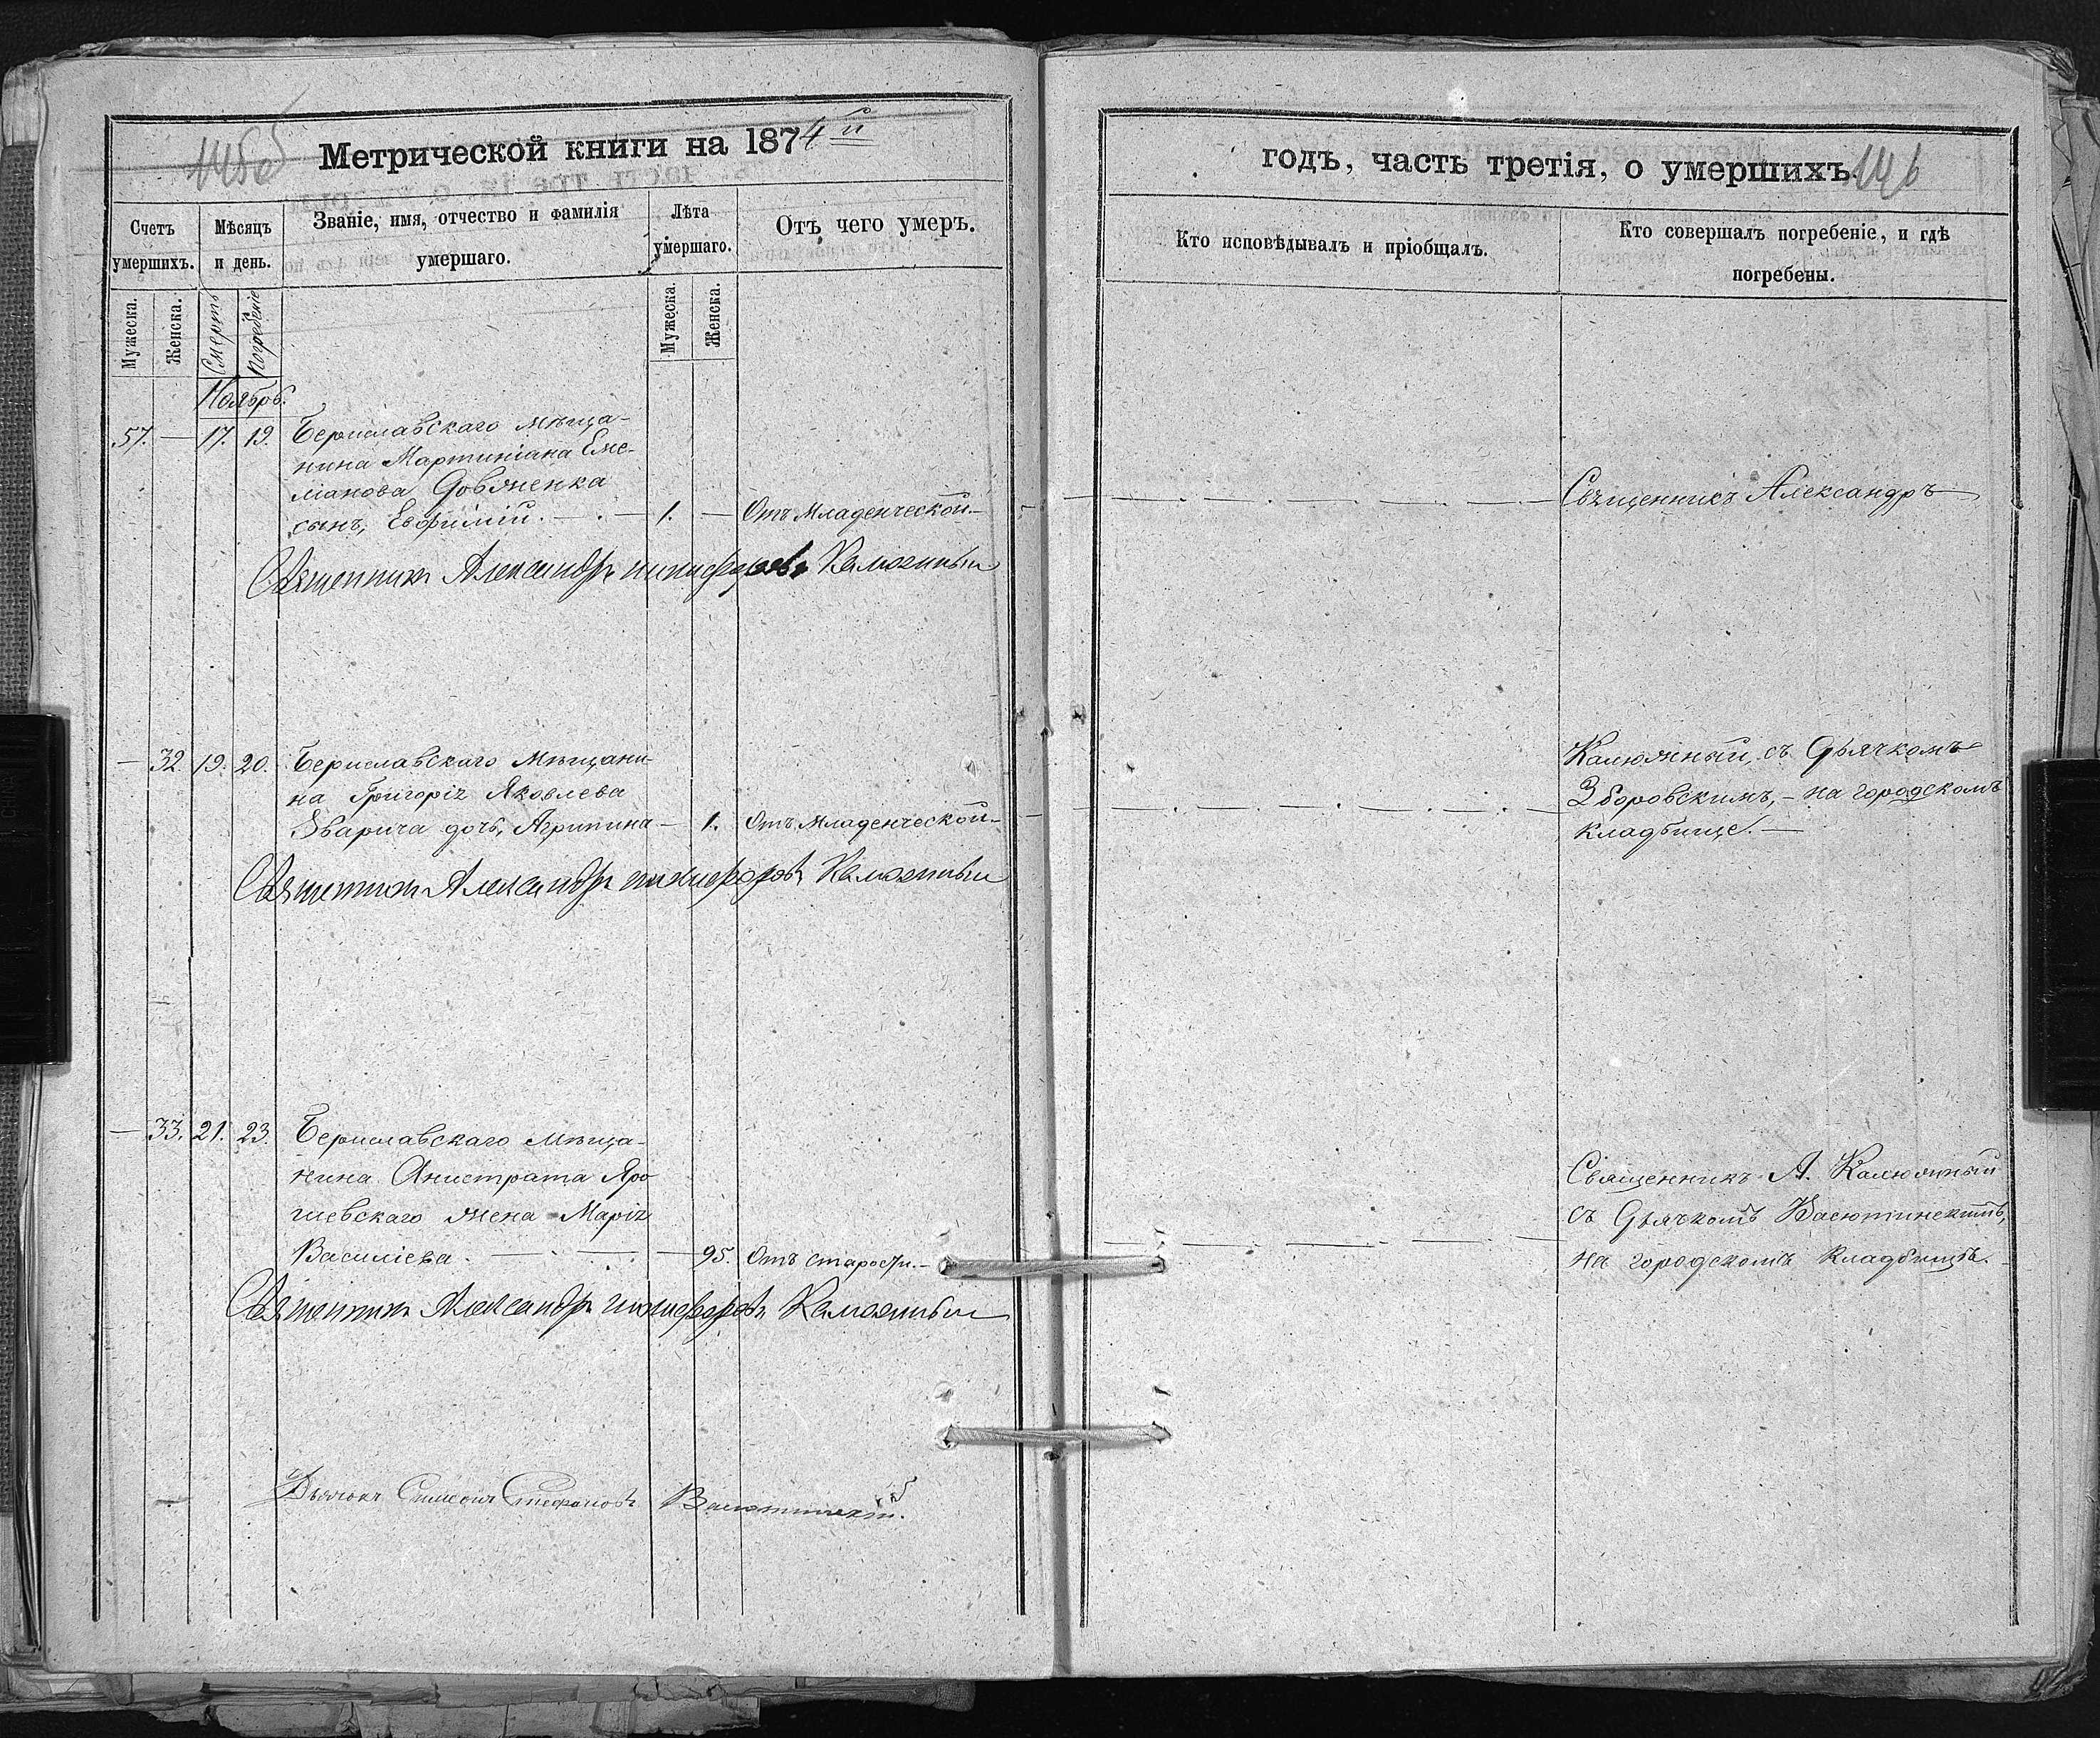 Метрической книги на 1874й
Счетъ
умершихъ.
Мѣсяцъ
и день.
Званіе, имя, отчество и фамилія
умершаго.
Лѣта
умершаго.
Отъ чего умеръ.
Мужеска.
Женска.
Смерть
Погребеніе
Мужеска.
Женска.
Ноябрь.
57. — 17. 19. Бериславскаго мѣща-
нина Мартиніана Еме-
ліанова Довженка
сынъ, Евфимій. — . — 1. — Отъ младенческой. —
Священникъ Александръ Никифоровъ Калюжный
— 32. 19. 20. Бериславскаго Мѣщани-
на Григорія Яковлева
Зварича дочь, Агрипина — 1. Отъ младенческой. —
Священникъ Александръ Никифоровъ Калюжный
— 33. 21. 23. Бериславскаго Мѣща-
нина Анистрата Яро
шевскаго жена Марія
Василіева. — . — . — 95. Отъ старости. —
Священникъ Александръ Никифоровъ Калюжный
Дьячокъ Симеонъ Стефановъ Васютинскій.
годъ, часть третія, о умершихъ.
146
Кто исповѣдывалъ и пріобщалъ.
Кто совершалъ погребеніе, и гдѣ
погребены.
Священникъ Александръ
Калюжный, съ Дьячкомъ
Зборовскимъ, — на городскомъ
кладбище. —
Священникъ А. Калюжный
съ Дьячкомъ Васютинскимъ,
на городскомъ кладбищѣ.